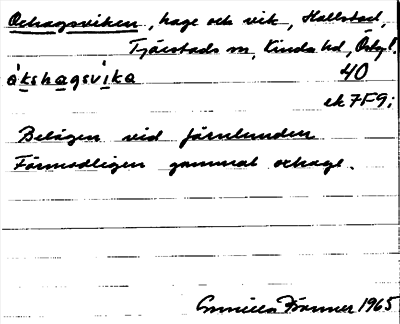 Oxhagsviken, hage och vik, Hallstad,
Tjärstads sn, Kinda hd, Östg!.
ákshagsvìka 40
ek 7F9;
Belägen vid Järnlunden
Förmodligen gammal oxhage.
Gunilla Franner 1965